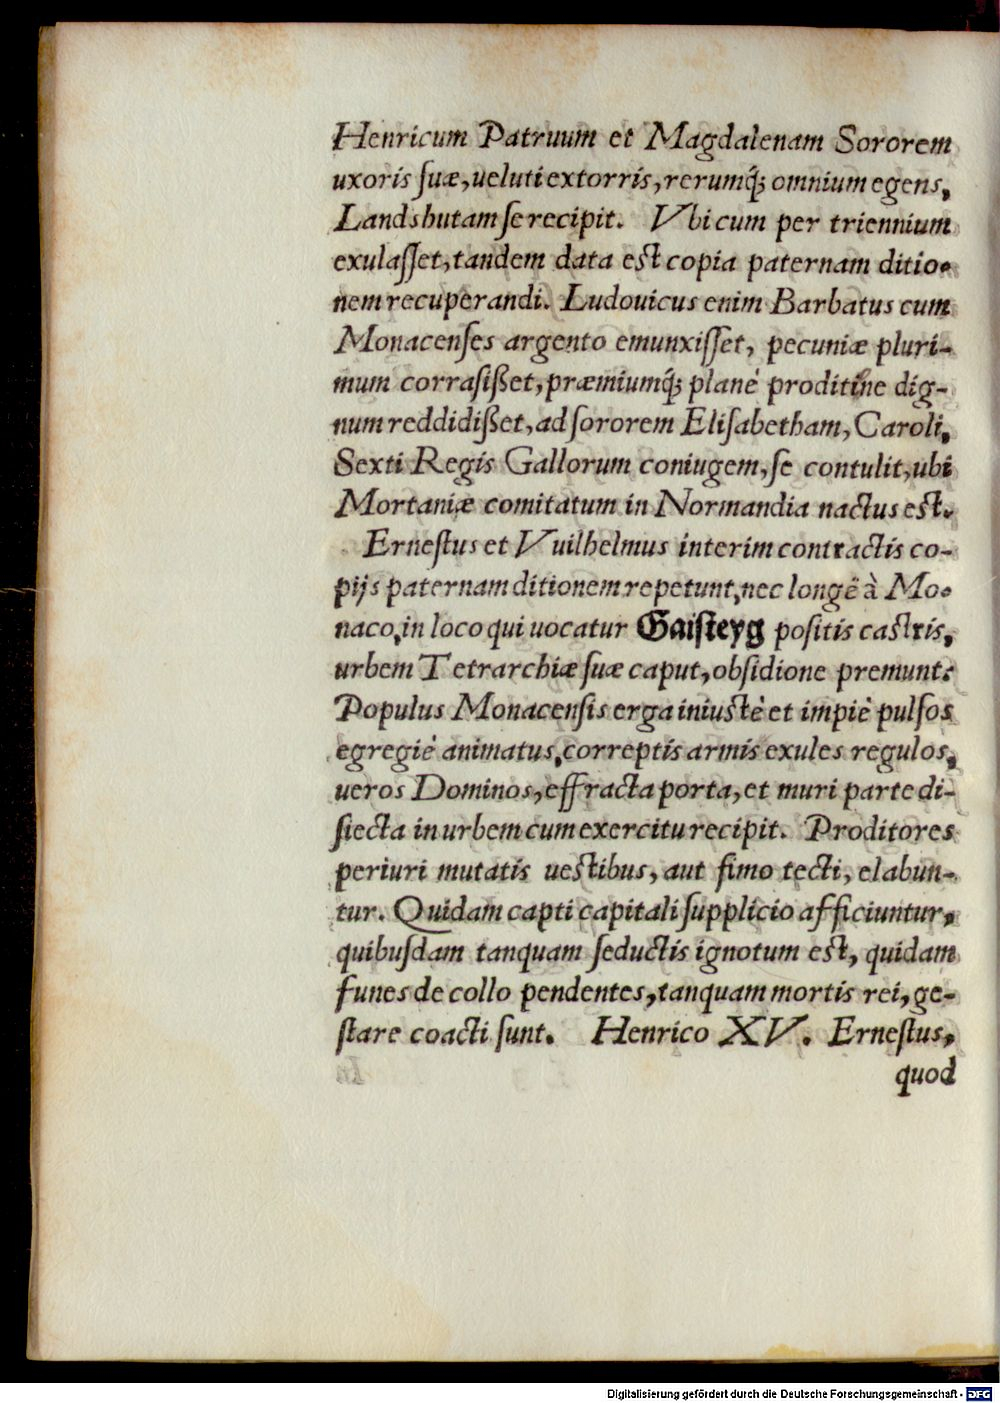 Henricum Patruum et Magdalenam Sororem
uxoris ſuæ, ueluti extorris, rerumq́ꝫ omnium egens,
Landshutam ſe recipit. Vbi cum per triennium
exulaſſet, tandem data est copia paternam ditio-
nem recuperandi. Ludouicus enim Barbatus cum
Monacenſes argento emunxiſſet, pecuniæ pluri-
mum corraſißet, præmiumq́ꝫ planè proditine dig-
num reddidißet, ad ſororem Eliſabetham, Caroli,
Sexti Regis Gallorum coniugem, ſe contulit, ubi
Mortaniæ comitatum in Normandia nactus est.
Erneſtus et Vuilhelmus interim contractis co-
pijs paternam ditionem repetunt, nec longè à Mo-
naco, in loco qui uocatur Gaiſteyg poſitis castris,
urbem Tetrarchiæ ſuæ caput, obſidione premunt:
Populus Monacenſis erga iniustè et impiè pulſos
egregiè animatus, correptis armis exules regulos,
ueros Dominos, effracta porta, et muri parte di-
ſiecta in urbem cum exercitu recipit. Proditores
periuri mutatis uestibus, aut fimo tecti, elabun-
tur. Quidam capti capitali ſupplicio afficiuntur,
quibuſdam tanquam ſeductis ignotum est, quidam
funes de collo pendentes, tanquam mortis rei, ge-
ſtare coacti ſunt. Henrico XV. Erneſtus,
quod
Digitalisierung gefördert durch die Deutsche Forschungsgemeinschaft - DFG